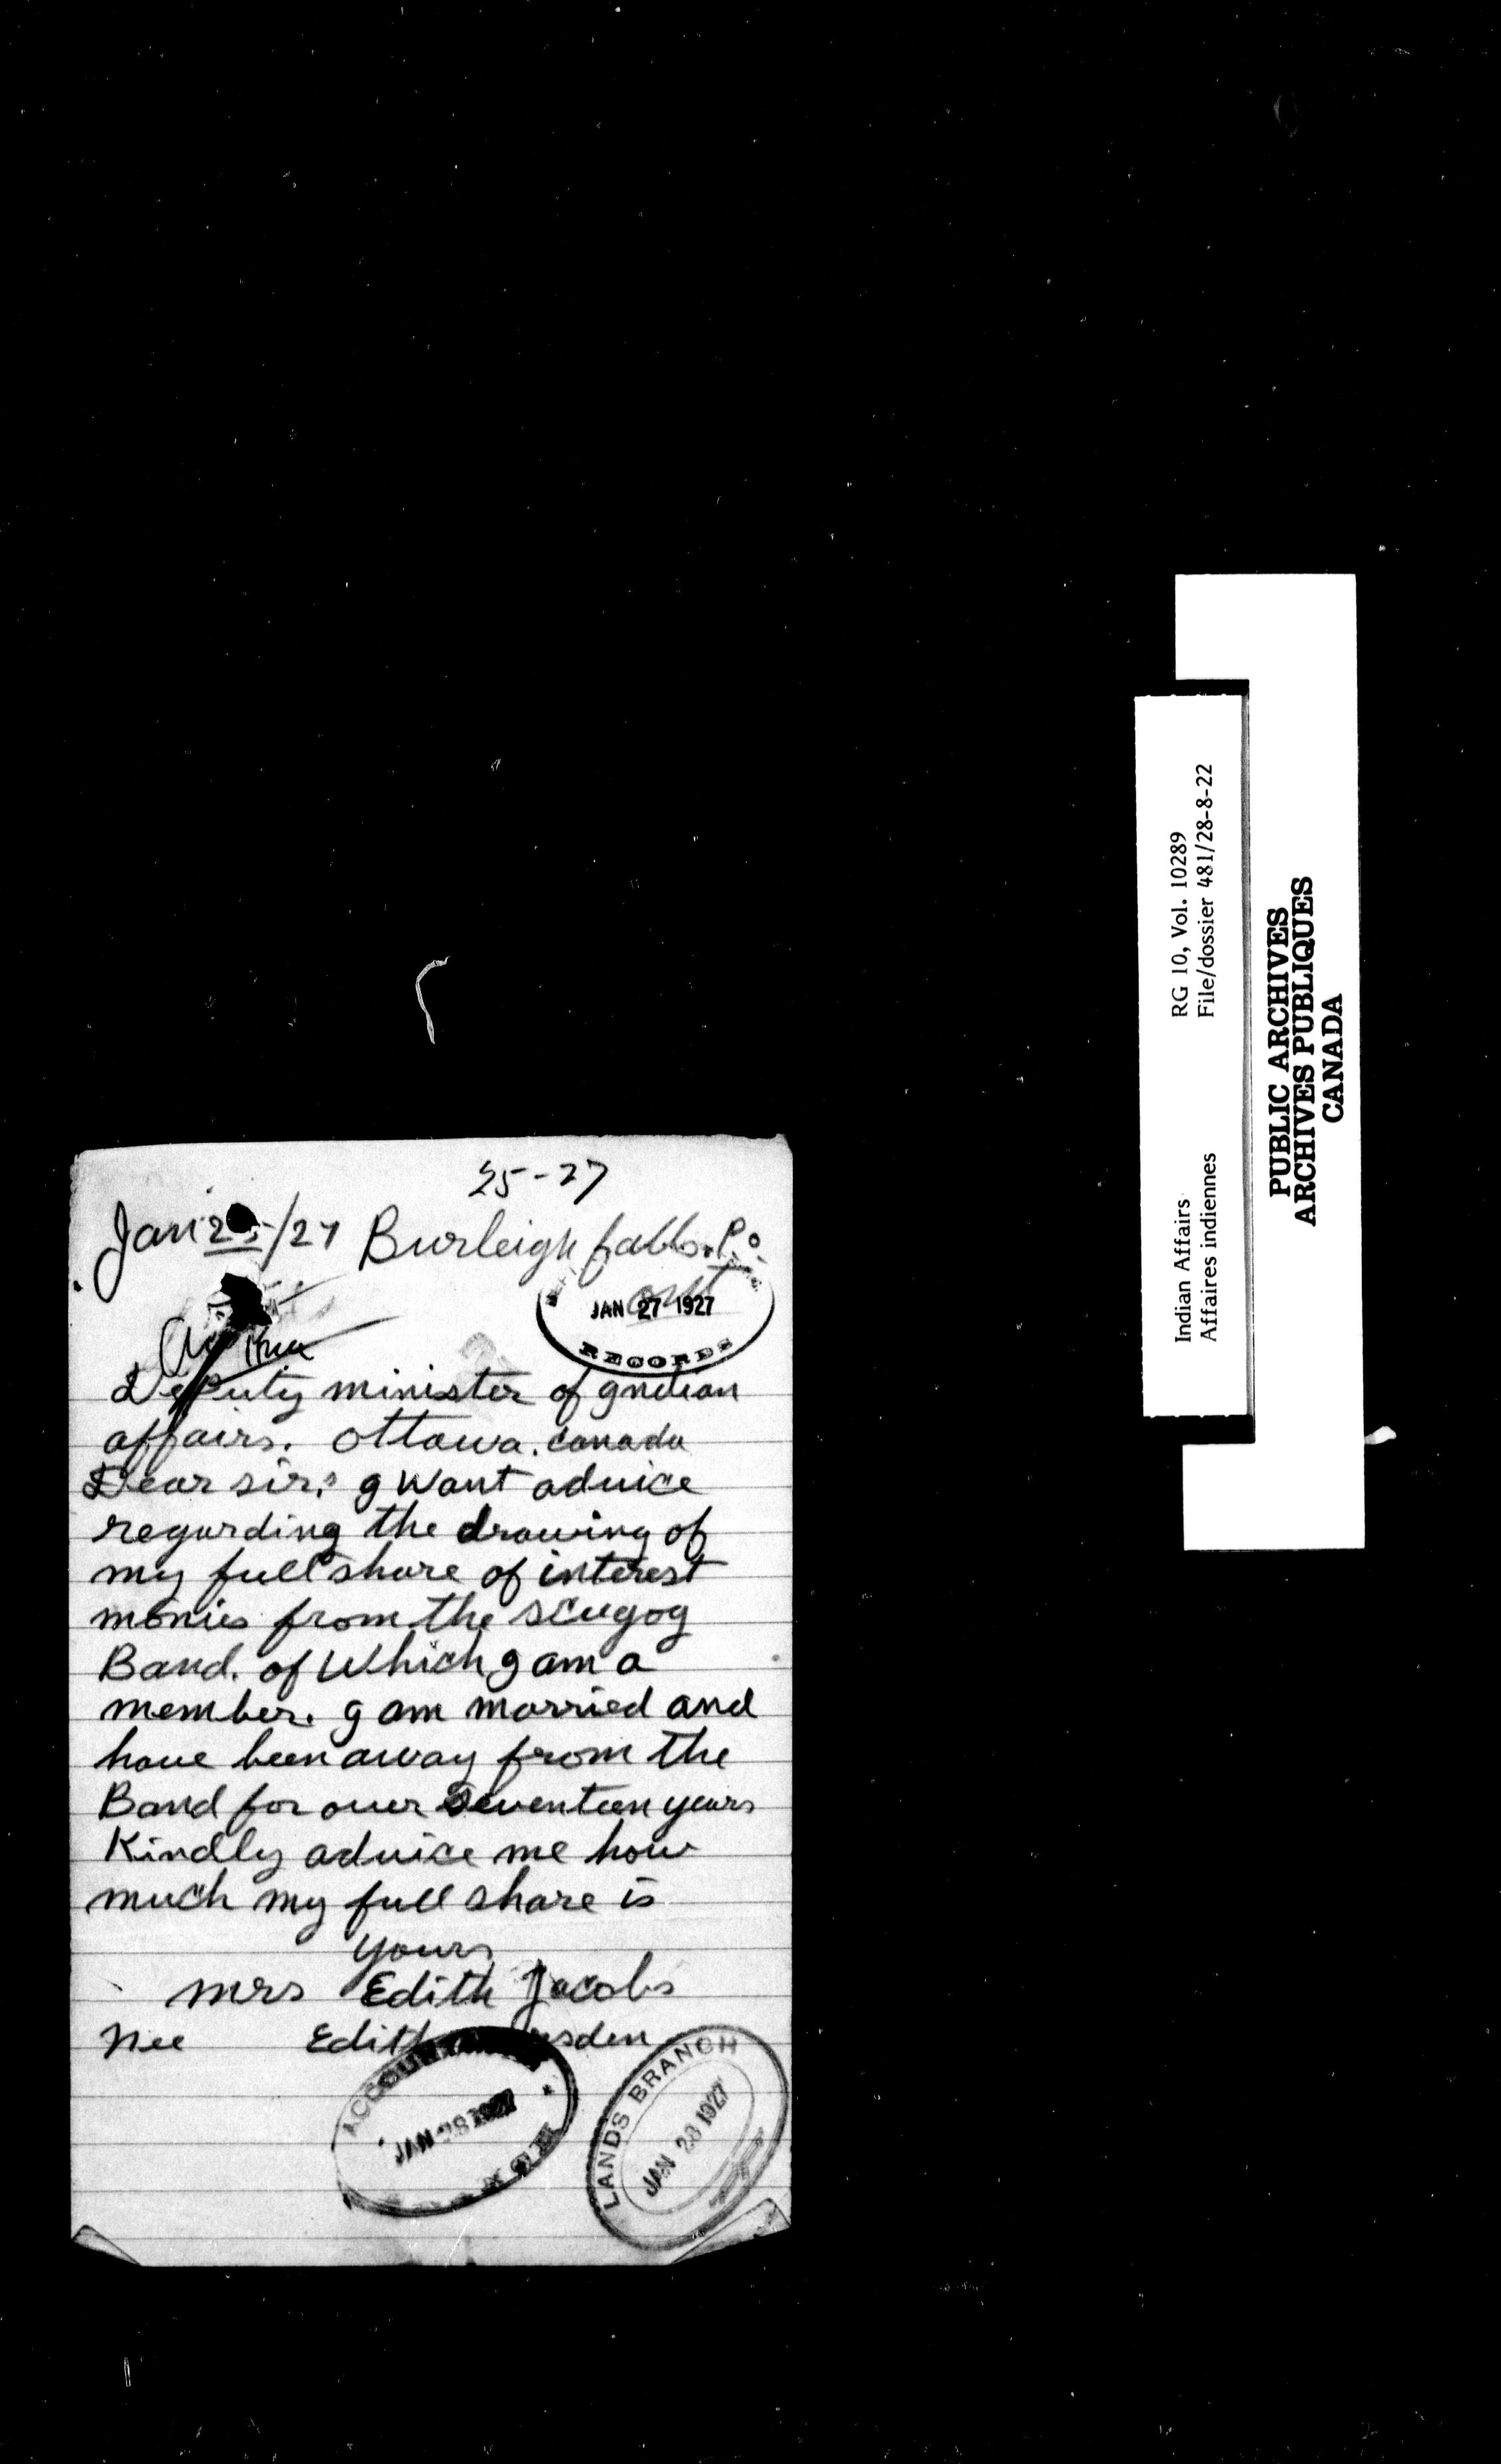 25-27
Jan 25/27 Burleigh falls. P.o.
ont
JAN 27 1927
RECORDS
Deputy minister of Indian
affairs. Ottawa. Canada
Dear sir: I Want advice
regarding the drawing of
my full share of interest
monies from the Scugog
Band. of Which I am a
member. I am married and
have been away from the
Band for over Seventeen years
Kindly advice me how
much my full share is
yours
Mrs Edith Jacobs
Nee Edith
JAN 28 1927
LANDS BRANCH
JAN 28 1927
Indian Affairs RG 10, Vol. 10289
Affaires indiennes File/dossier 481/28-8-22
PUBLIC ARCHIVES
ARCHIVES PUBLIQUES
CANADA